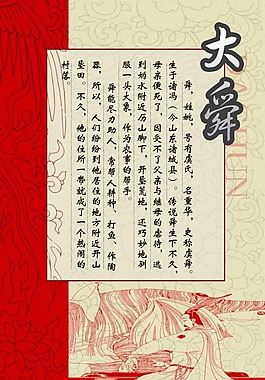 大舜
舜，姓姚，号有虞氏，名重华，史称虞舜。
生于诸冯（今山东诸城县）。传说舜生下不久，
母亲便死了，因受不了父亲与继母的虐待，逃
到妫水附近历山脚下，开垦荒地，还巧妙地驯
服一头大象，作为农事的帮手。
舜能尽力助人，常帮人耕种、打鱼、作陶
器，所以，人们纷纷到他居住的地方附近开山
垦田。不久，他的住所一带就成了一个热闹的
村落。